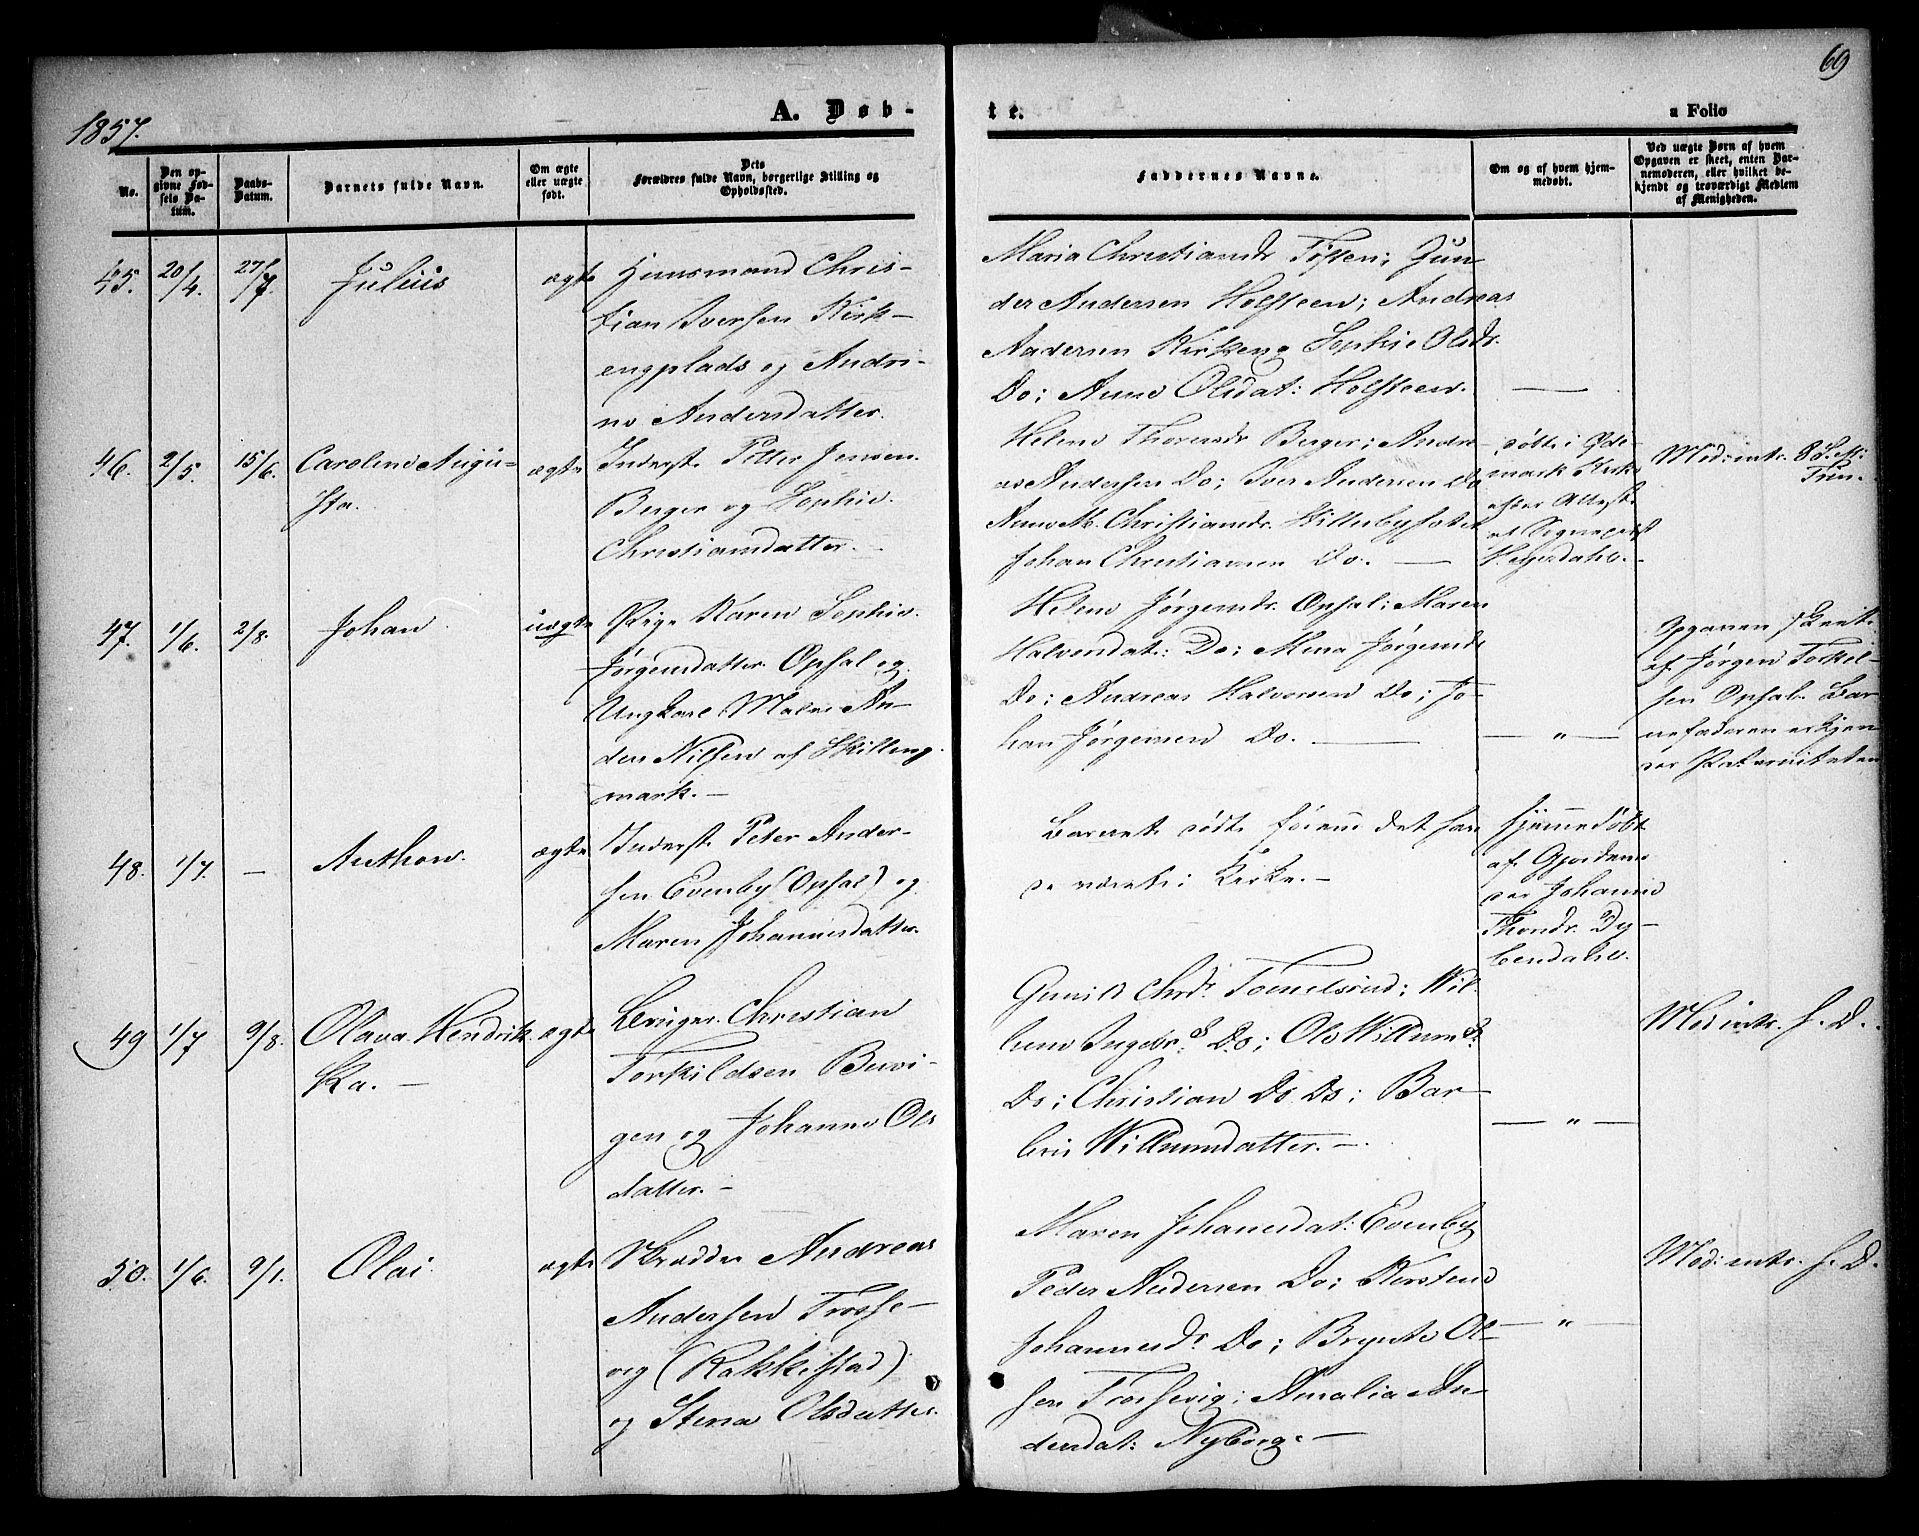 69
1857.
A. Døb-
te.
a Folio
No.
Den op-
givne Fød-
sels Da-
tum.
Daabs-
Datum.
Barnets fulde Navn.
Om ægte
eller uægte
født.
Dets
Forældres fulde Navn, borgerlige Stilling og
Opholdssted.
Faddernes Navne.
Om og af hvem hjem-
medøbt.
Ved uægte Børn af hvem
Opgaven er skeet, enten Bar-
nemoderen, eller hvilket be-
kjendt og troværdigt Medlem
af Menigheden.
45. 20/4. 27/7. Julius ægte
Huusmand Chris-
tian Iversen Kirk-
engplads og Andri-
ne Andersdatter.
Maria Christiansdr Toften; Gun-
der Andersen Holsteen; Andreas
Andersen Kirkeng Sophie Olsdr.
Do; Anne Olsdat: Holsteen. —
46. 2/5. 15/6. Caroline Augu-
sta. ægte
Inderst. Petter Jensen
Berger og Sophie
Christiansdatter.
Helene Thorersdr Berger; Andre-
as Andersen Do; Iver Andersen Do
Anne M. Christiansdr.
Johan Christiansen Do. —
døbt i Øde-
mark Kirke
efter Attest
af Sognepræst
Hejerdahl.
Mod: intr.
47. 1/6. 2/8. Johan uægte
Pige Karen Sophie
Jørgensdatter Opsal og
Ungkarl
ders Nilsen af Skilleng
mark. —
Helene Jørgensdr. Opsal; Maren
Halvorsdat: Do; Mina Jørgensdr
Do; Andreas Halvorsen Do; Jo-
han Jørgensen Do. —
— " —
Opgaven skeet
af Jørgen Torkel-
sen Opsal. Bar-
nefaderen erkjen-
der Paterniteten
48. 1/7. — Anthon. ægte
Inderst. Peter Ander-
sen Evenby (Opsal) og
Maren Johannesdatter.
Barnet døde førend det han
de været i Kirke. —
hjemmedøbt
af Gjordemo
der Johanne
Thordr. Dy-
bendahl.
49 1/7 9/8. Olava Hendrik-
ka. — ægte
Bruger Christian
Torkildsen Buvi-
gen og Johanne Ols
datter. —
Gunild Chrdr. Tomelsrud; Wil-
Do; Ole Willumd.
Do; Christian Do Do; Bar-
bru Willumsdatter. —
— " —
Mod intr. s. D.
50. 1/6. 9/1. Olai. ægte
Skrædder Andreas
Andersen Trosse-
vig (Rakkestad)
og Stena Olsdatter.
Maren Johanesdat: Evenby
Peder Andersen Do; Kirstene
Johannesdr. Do; Brynte Ol-
sen Trossevig; Amalia An-
dersdat: Nyborg. —
— " —
Mod: intr. s. D.